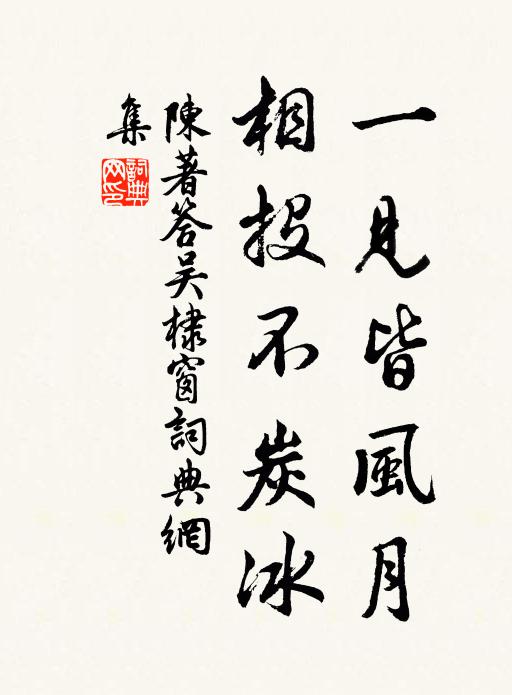 一見皆風月
相投不炭冰
陳著答吴棣窗詞典網
集
詞典网印